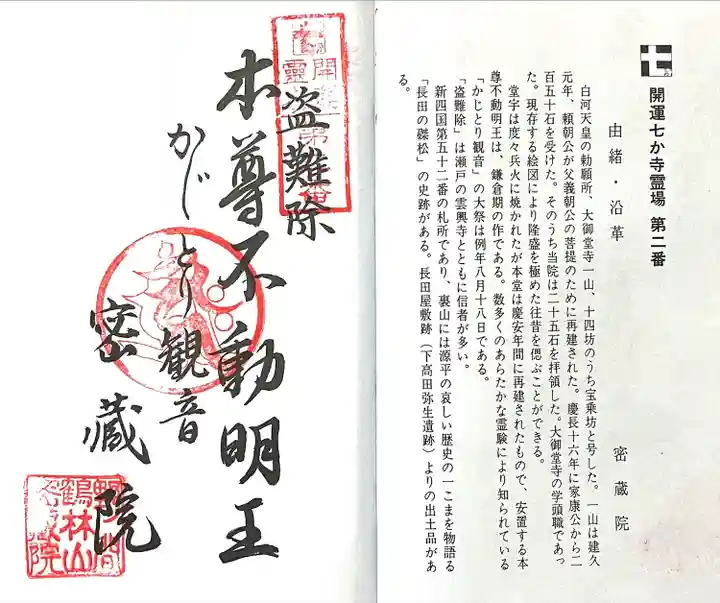 開運七か寺霊場 第二番
由緒・沿革
密蔵院
白河天皇の勅願所、大御堂寺一山、十四坊のうち宝乗坊と号した。一山は建久
元年、頼朝公が父義朝公の菩提のために再建された。慶長十六年に家康公から二
百五十石を受けた。そのうち当院は二十五石を拝領した。大御堂寺の学頭職であっ
た。現存する絵図により隆盛を極めた往昔を偲ぶことができる。
堂宇は度々兵火に焼かれたが本堂は慶安年間に再建されたもので、安置する本
尊不動明王は、鎌倉期の作である。数多くのあらたかな霊験により知られている
「かじとり観音」の大祭は例年八月十八日である。
「盗難除」は瀬戸の雲興寺とともに信者が多い。
新四国第五十二番の札所であり、裏山には源平の哀しい歴史の一こまを物語る
「長田の磔松」の史跡がある。長田屋敷跡(下高田弥生遺跡)よりの出土品があ
る。
盗難除
本尊不動明王
かじとり観音
密蔵院
開運
霊
野間
鶴林山
密蔵院